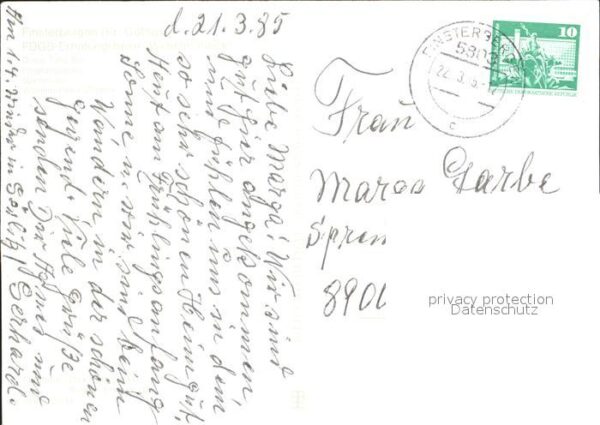 d. 21.3.85
Liebe Marga! Wir sind
gut hier angekommen,
und fühlen uns in dem
so sehr schönen Heim gut.
Heut am Frühlingsanfang
Sonne u. wir sind beim
Wandern in der schönen
Gegend. Viele Grüße
senden Dir Agnes und
Gerhard.
Am 1.4. wieder in Görlitz!
Finsterbergen (Kr. Gotha)
FDGB-Erholungsheim
FINSTERBERGEN
5803
22.3.85-17
c
10
DEUTSCHE DEMOKRATISCHE REPUBLIK
Frau
Marga Garbe
8901
privacy protection
Datenschutz